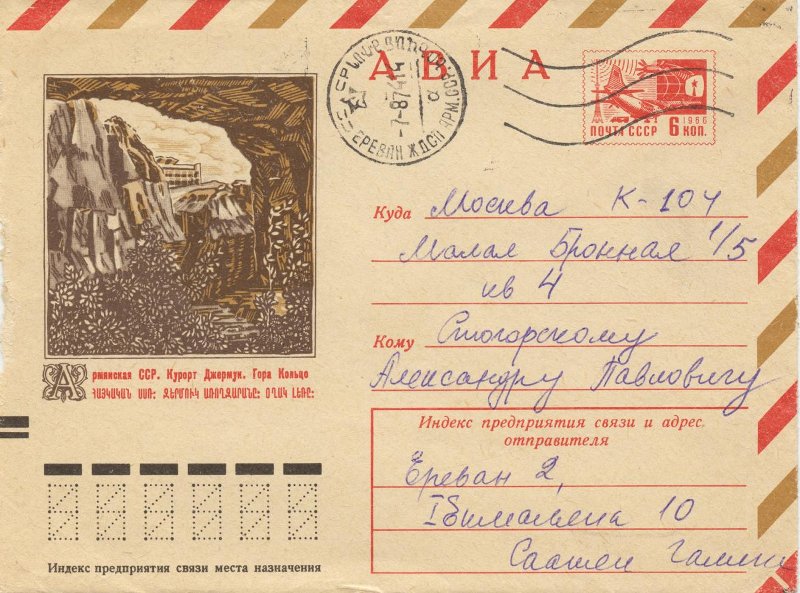 АВИА
ПОЧТА СССР 6 КОП.
1966
ЕРЕВАН ЖДСП АРМ.ССР
Куда Москва К-104
Малая Бронная 1/5
кв 4
Кому Стогорскому
Александру Павловичу
Армянская ССР. Курорт Джермук. Гора Кольцо
ՀԱՅԿԱԿԱՆ ՍՍՀ: ՋԵՐՄՈՒԿ ԱՌՈՂՋԱՐԱՆԸ: ՕՂԱԿ ԼԵՌԸ:
Индекс предприятия связи и адрес
отправителя
Ереван 2,
10
Индекс предприятия связи места назначения